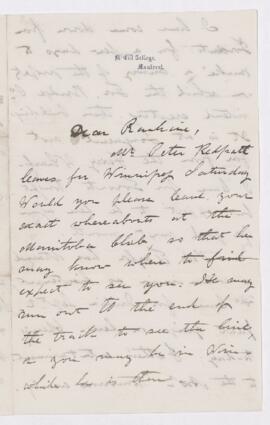 McGill College,
Montreal.
Dear Rankine,
Mr Peter Redpath
leaves for Winnipeg Saturday
Would you please leave your
exact whereabouts at the
Manitoba Club so that he
may know where to find
expect to see you. He may
run out to the end of
the track to see the line,
or you may be in Winn-
while he is there